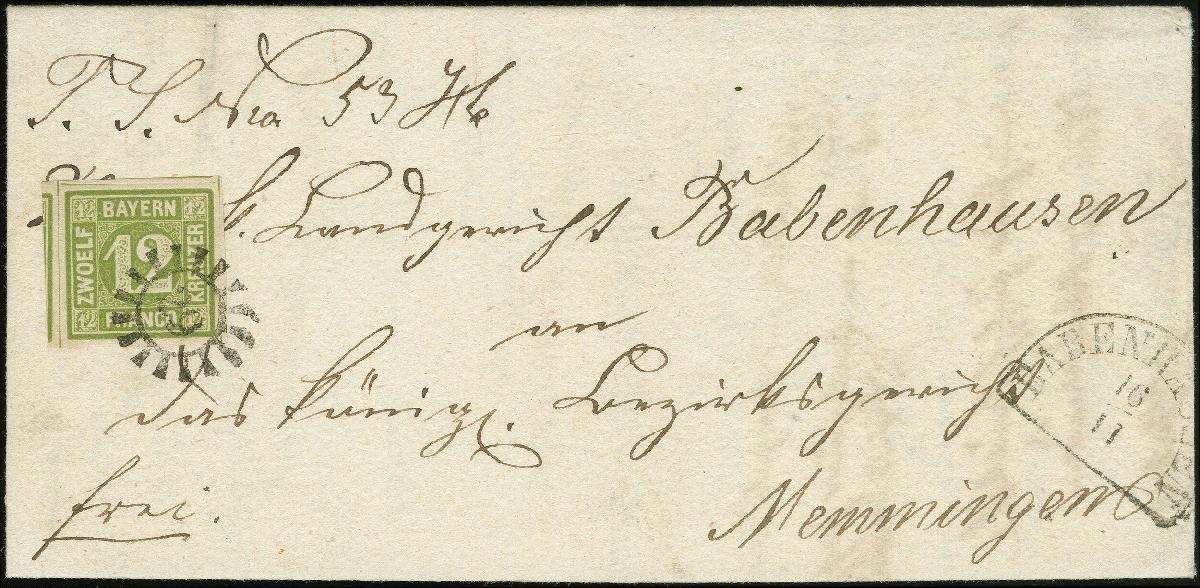 53
Landgericht Babenhausen
BAYERN
ZWOELF
KREUZER
FRANCO
12
12
12
12
12
an
das königl. Bezirksgericht
BABENHAUSEN
16
11
Memmingen
frei.